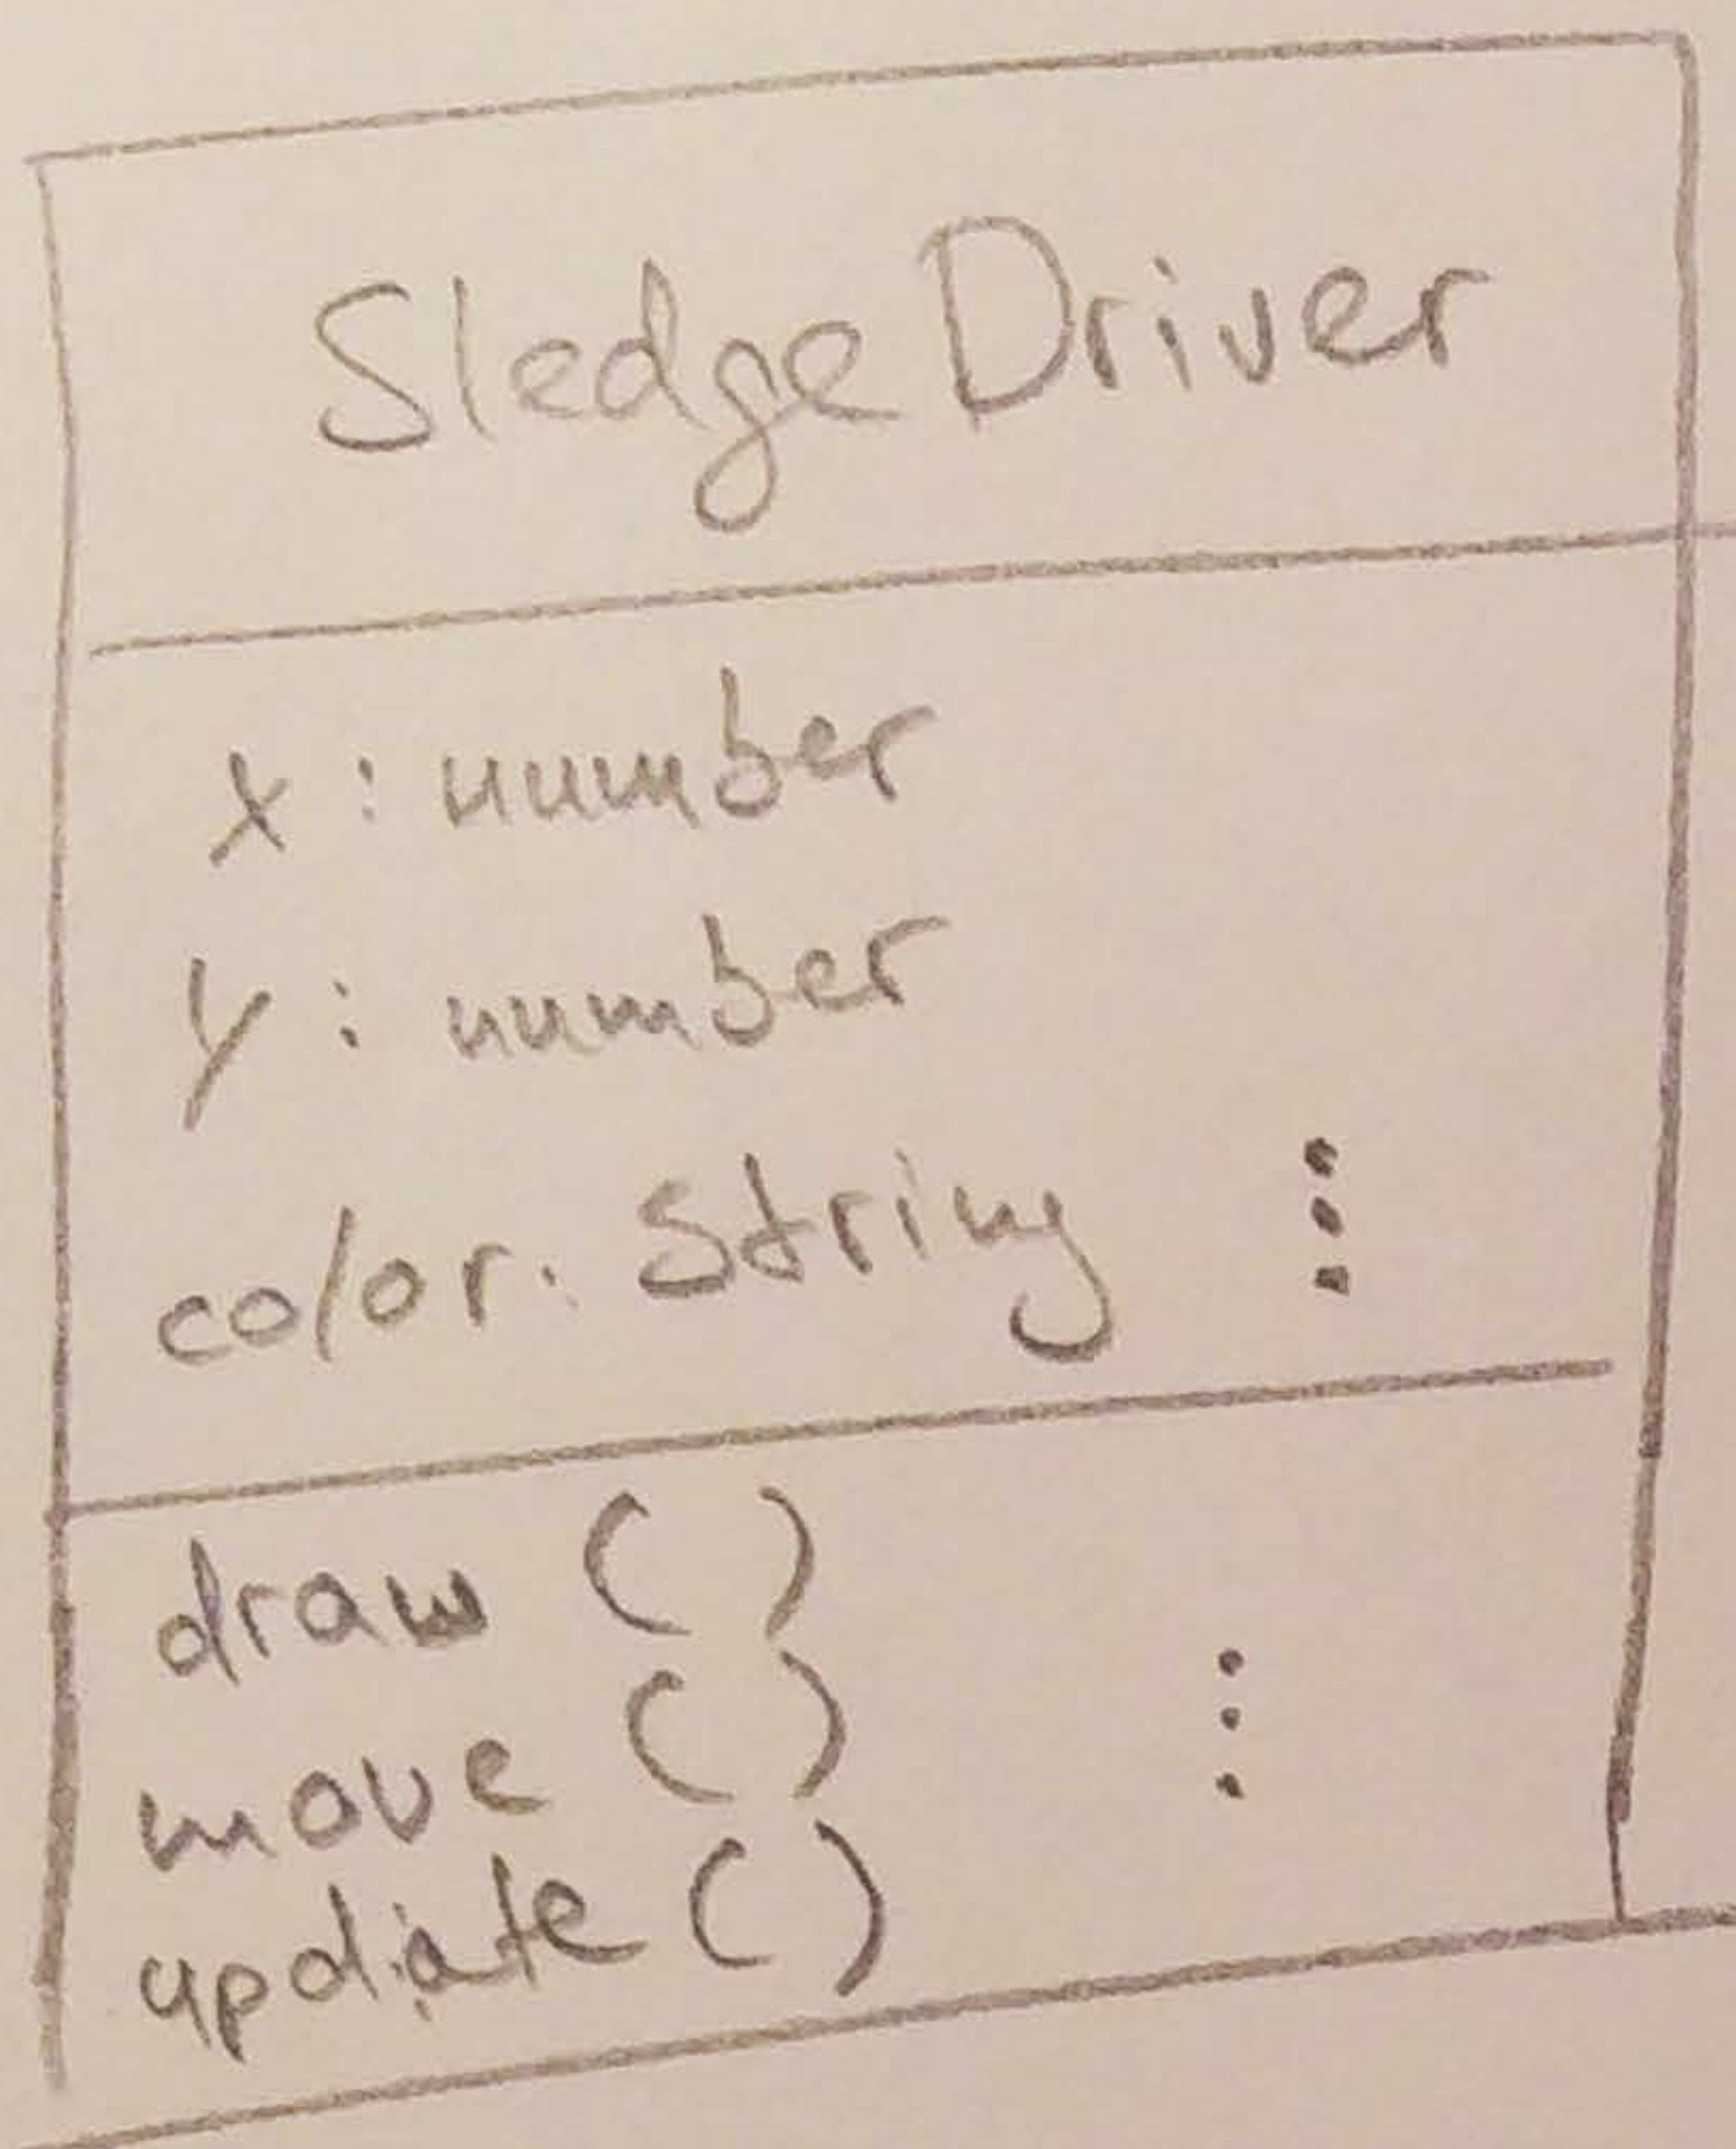 SledgeDriver
x : number
y : number
color: String ⋮
draw ( )
move ( ) ⋮
update ( )